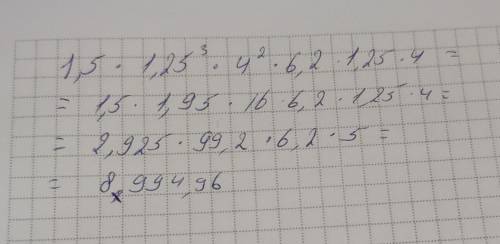 1,5 · 1,25³ · 4² · 6,2 · 1,25 · 4 =
= 1,5 · 1,95 · 16 · 6,2 · 1,25 · 4 =
= 2,925 · 99,2 · 6,2 · 5 =
= 8 994,96